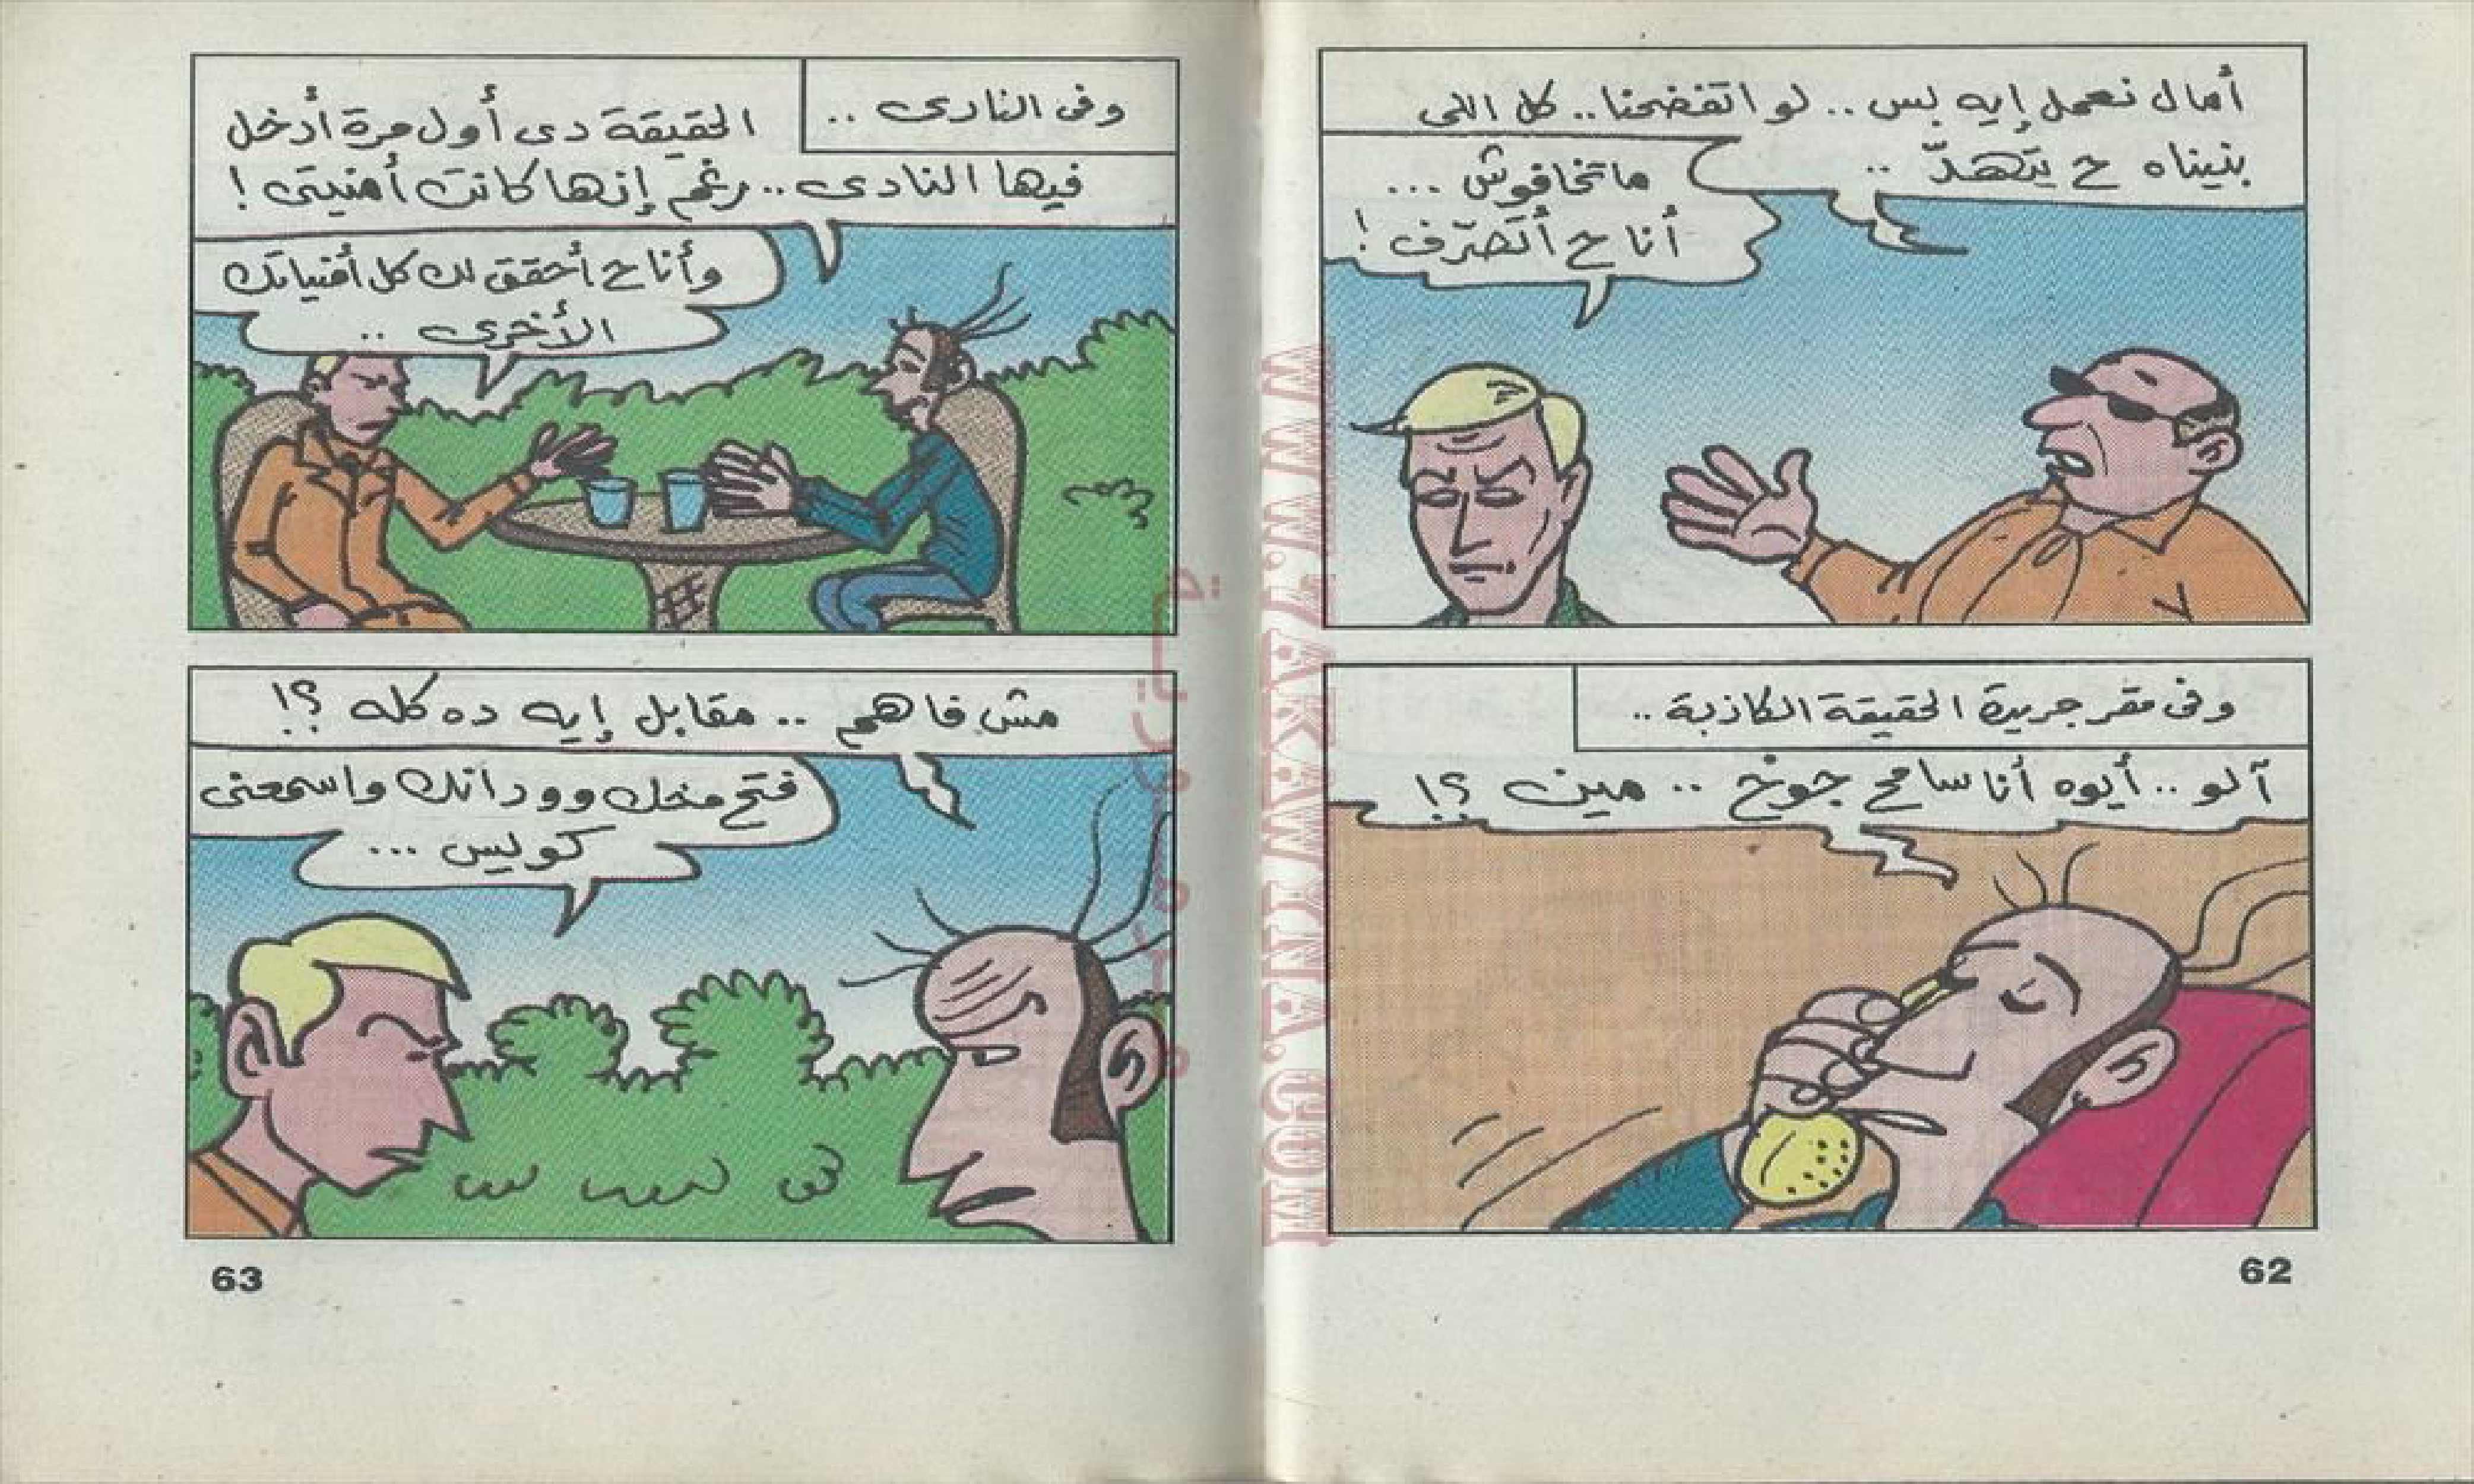 أمال نعمل إيه بس .. لو اتفضحنا .. كل اللى
بنيناه ح يتهدّ ..
ماتخافوش ...
أنا ح أتصرّف !
وفى مقر جريدة الحقيقة الكاذبة ..
آلو .. أيوه أنا سامح جوخ .. مين ؟!
62
وفى النادى ..
الحقيقة دى أول مرة أدخل
فيها النادى .. رغم إنها كانت أمنيتى !
وأنا ح أحقق لك كل أمنياتك
الأخرى ..
مش فاهم .. مقابل إيه ده كله ؟!
فتح مخك وودانك واسمعنى
كويس ...
63
WWW.ZAKAWKINA.COM